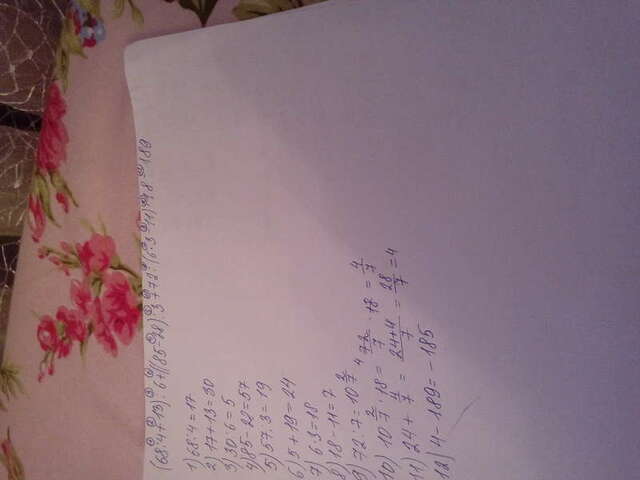 (68:4+13):6+((85-28):3+72:(6·3-11)·18-189
1) 68:4=17
2) 17+13=30
3) 30:6=5
4) 85-28=57
5) 57:3=19
6) 5+19=24
7) 6·3=18
8) 18-11=7
9) 72:7=10 2/7
10) 10 2/7 · 18 = 4 72/7 · 18 = 4/7
11) 24+ 4/7 = 24+4/7 = 28/7 = 4
12) 4-189=-185